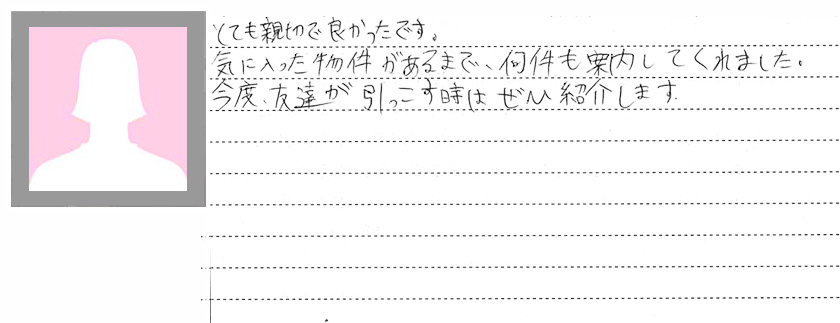 とても親切で良かったです。
気に入った物件があるまで、何件も案内してくれました。
今度、友達が引っこす時はぜひ紹介します.